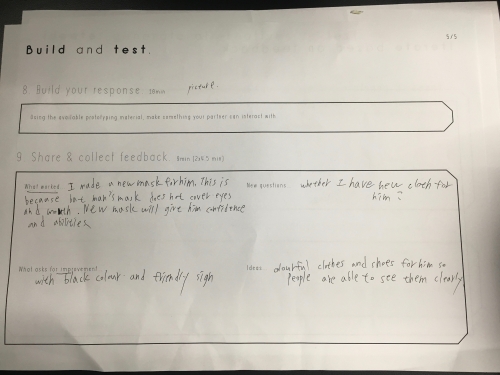 5/5
Build and test.
8 Build your response 20min picture.
Using the available prototyping material, make something your partner can interact with.
9 Share & collect feedback 9min (2x4.5 min)
What worked I made a new mask for him. This is
because bat man's mask does not cover eyes
and mouth. New mask will give him confidence
and abilities
New questions whether I have new cloth for
him?
What asks for improvement
with black colour and friendly sign
Ideas colourful clothes and shoes for him so
people are able to see them clearly